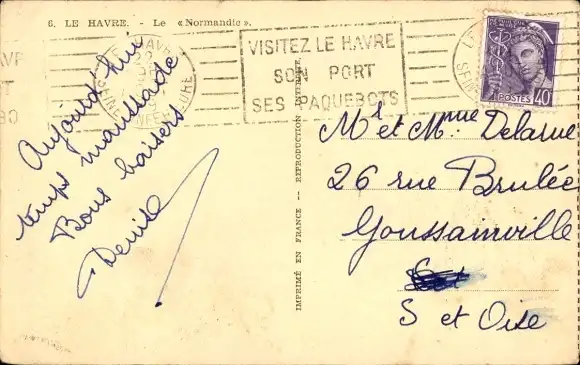 6. LE HAVRE. - Le «Normandie».
LE HAVRE
SEINE INFERIEURE
VISITEZ LE HAVRE
SON PORT
SES PAQUEBOTS
POSTES 40
Aujourd'hui
temps maussade
Bons baisers
Denise
IMPRIMÉ EN FRANCE — REPRODUCTION INTERDITE
Mr et Mme Delarue
26 rue Brulée
Goussainville
S et Oise